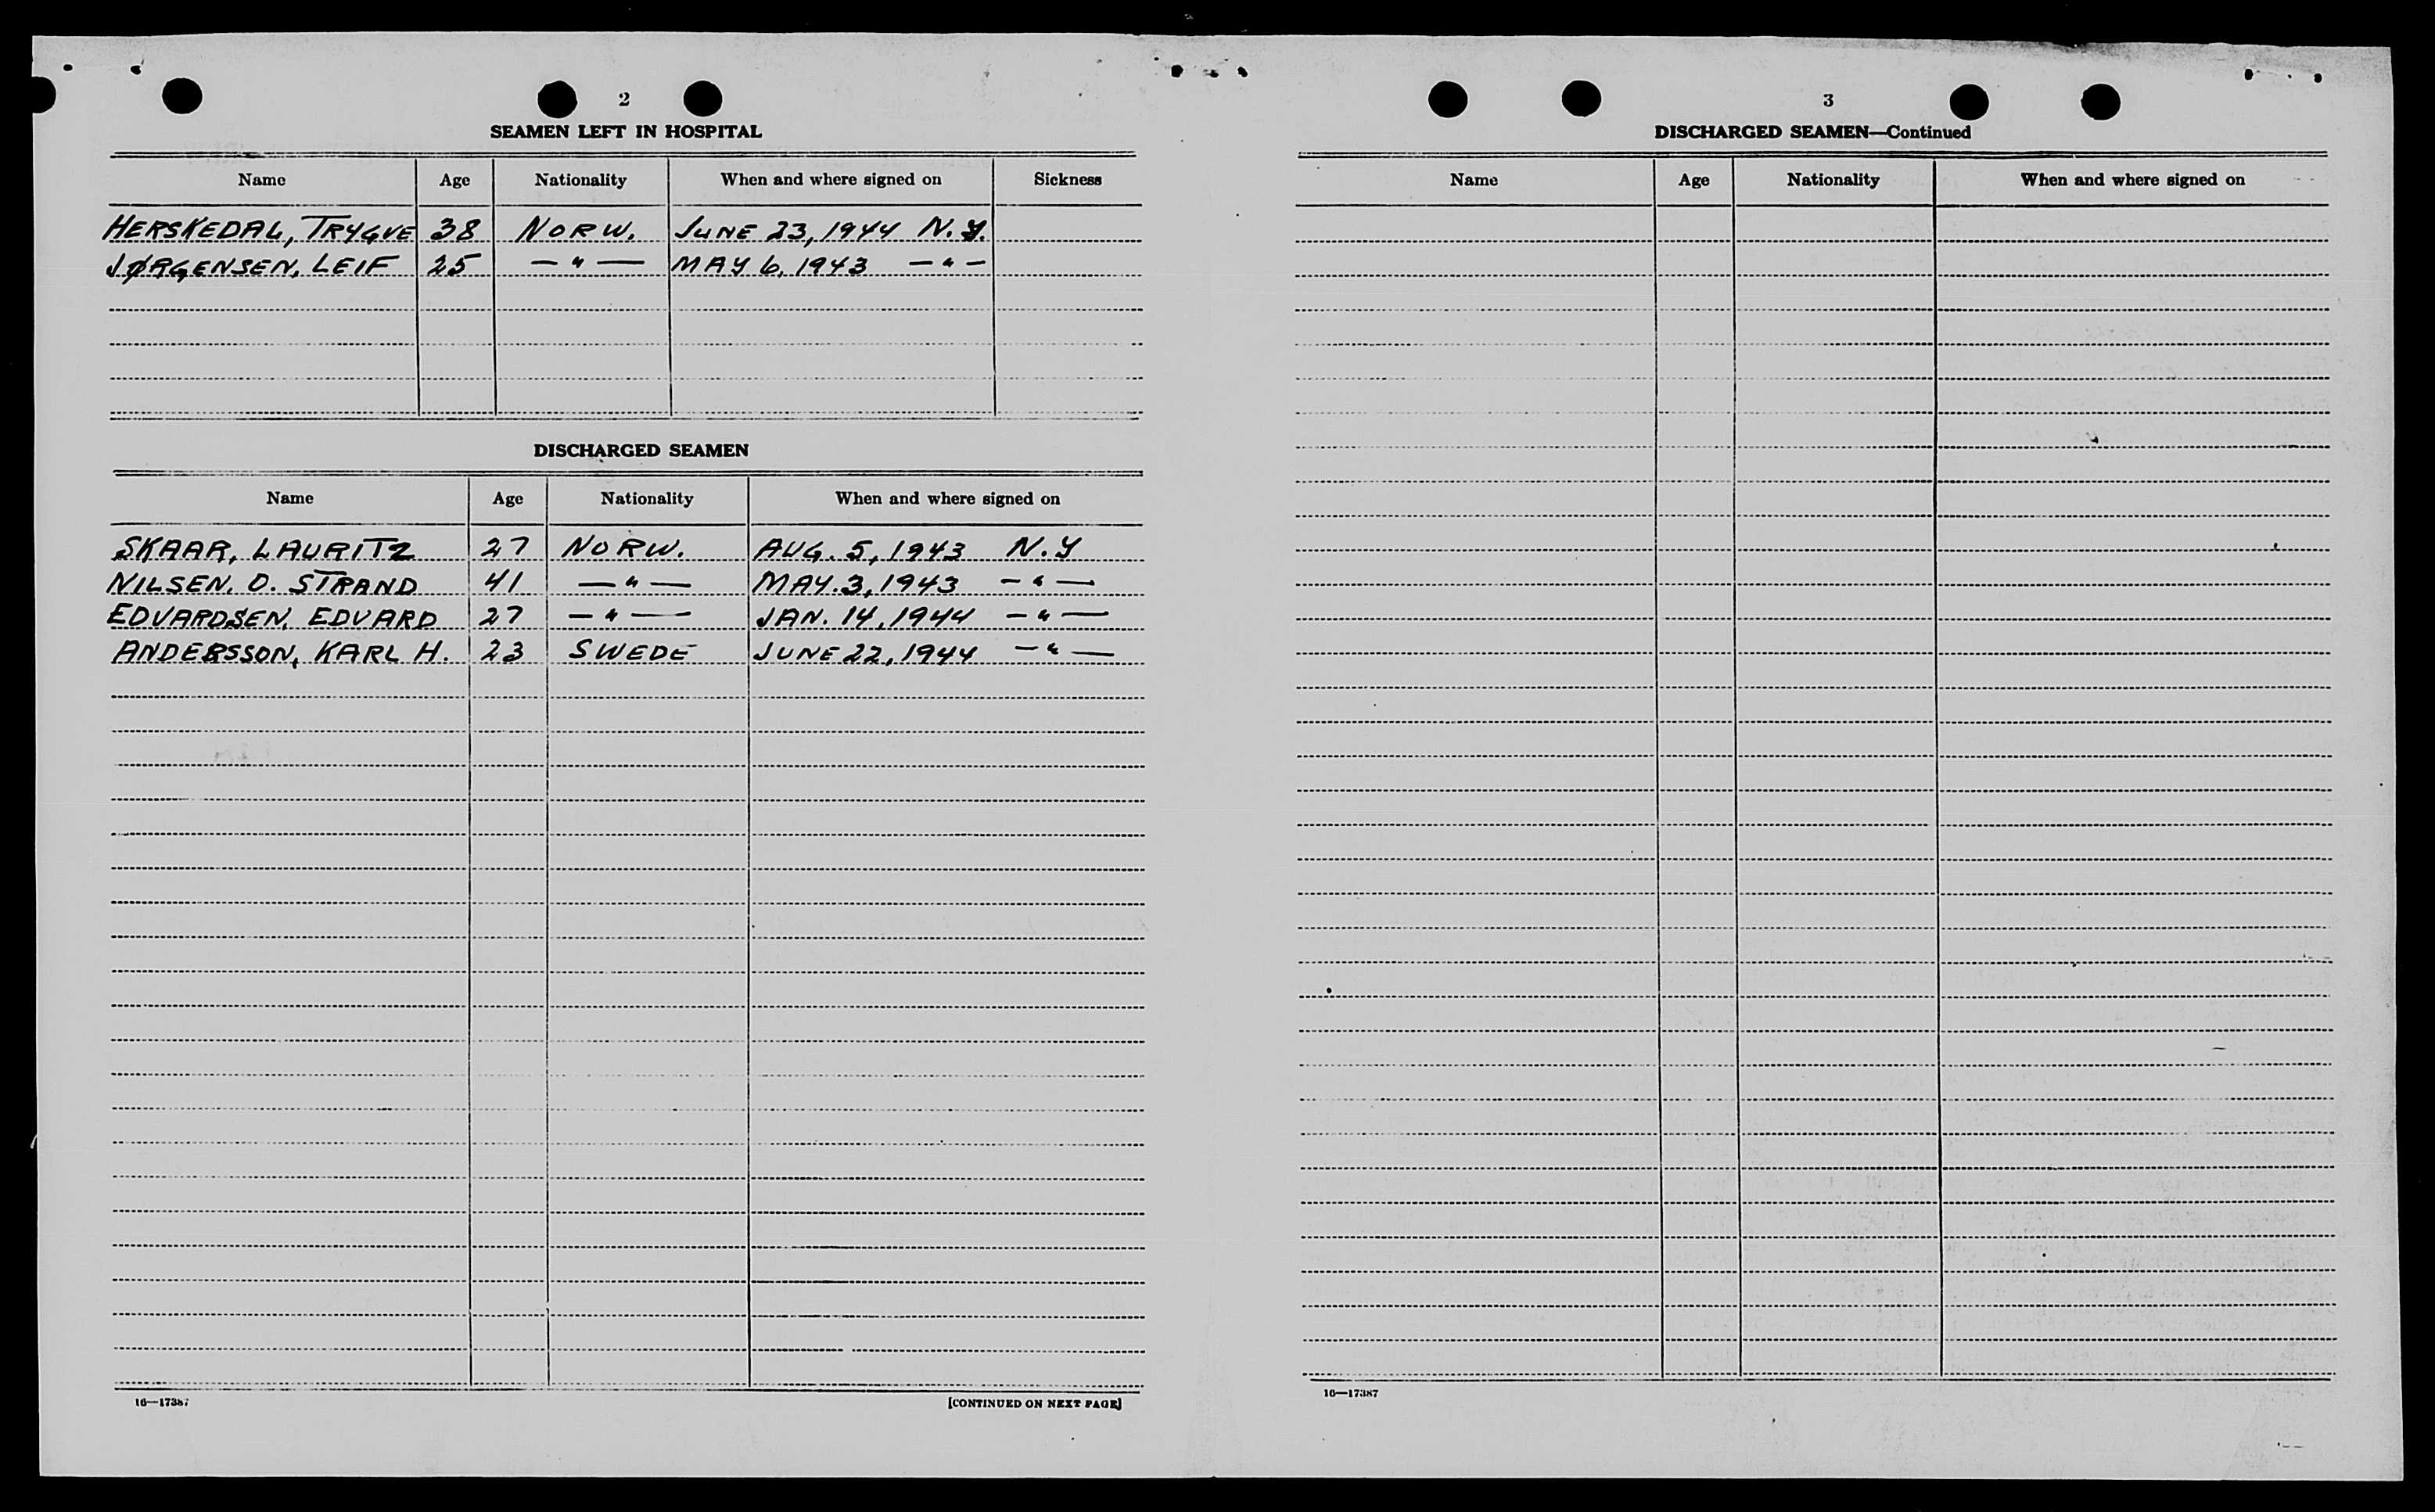 2
SEAMEN LEFT IN HOSPITAL
Name Age Nationality When and where signed on Sickness
HERSKEDAL, TRYGVE 38 NORW. JUNE 23, 1944 N.Y.
JØRGENSEN, LEIF 25 — " — MAY 6, 1943 — " —
DISCHARGED SEAMEN
Name Age Nationality When and where signed on
SKAAR, LAURITZ 27 NORW. AUG. 5, 1943 N.Y
NILSEN, O. STRAND 41 — " — MAY. 3, 1943 — " —
EDVARDSEN, EDVARD 27 — " — JAN. 14, 1944 — " —
ANDERSSON, KARL H. 23 SWEDE JUNE 22, 1944 — " —
16—17387 [CONTINUED ON NEXT PAGE]
3
DISCHARGED SEAMEN—Continued
Name Age Nationality When and where signed on
16—17387